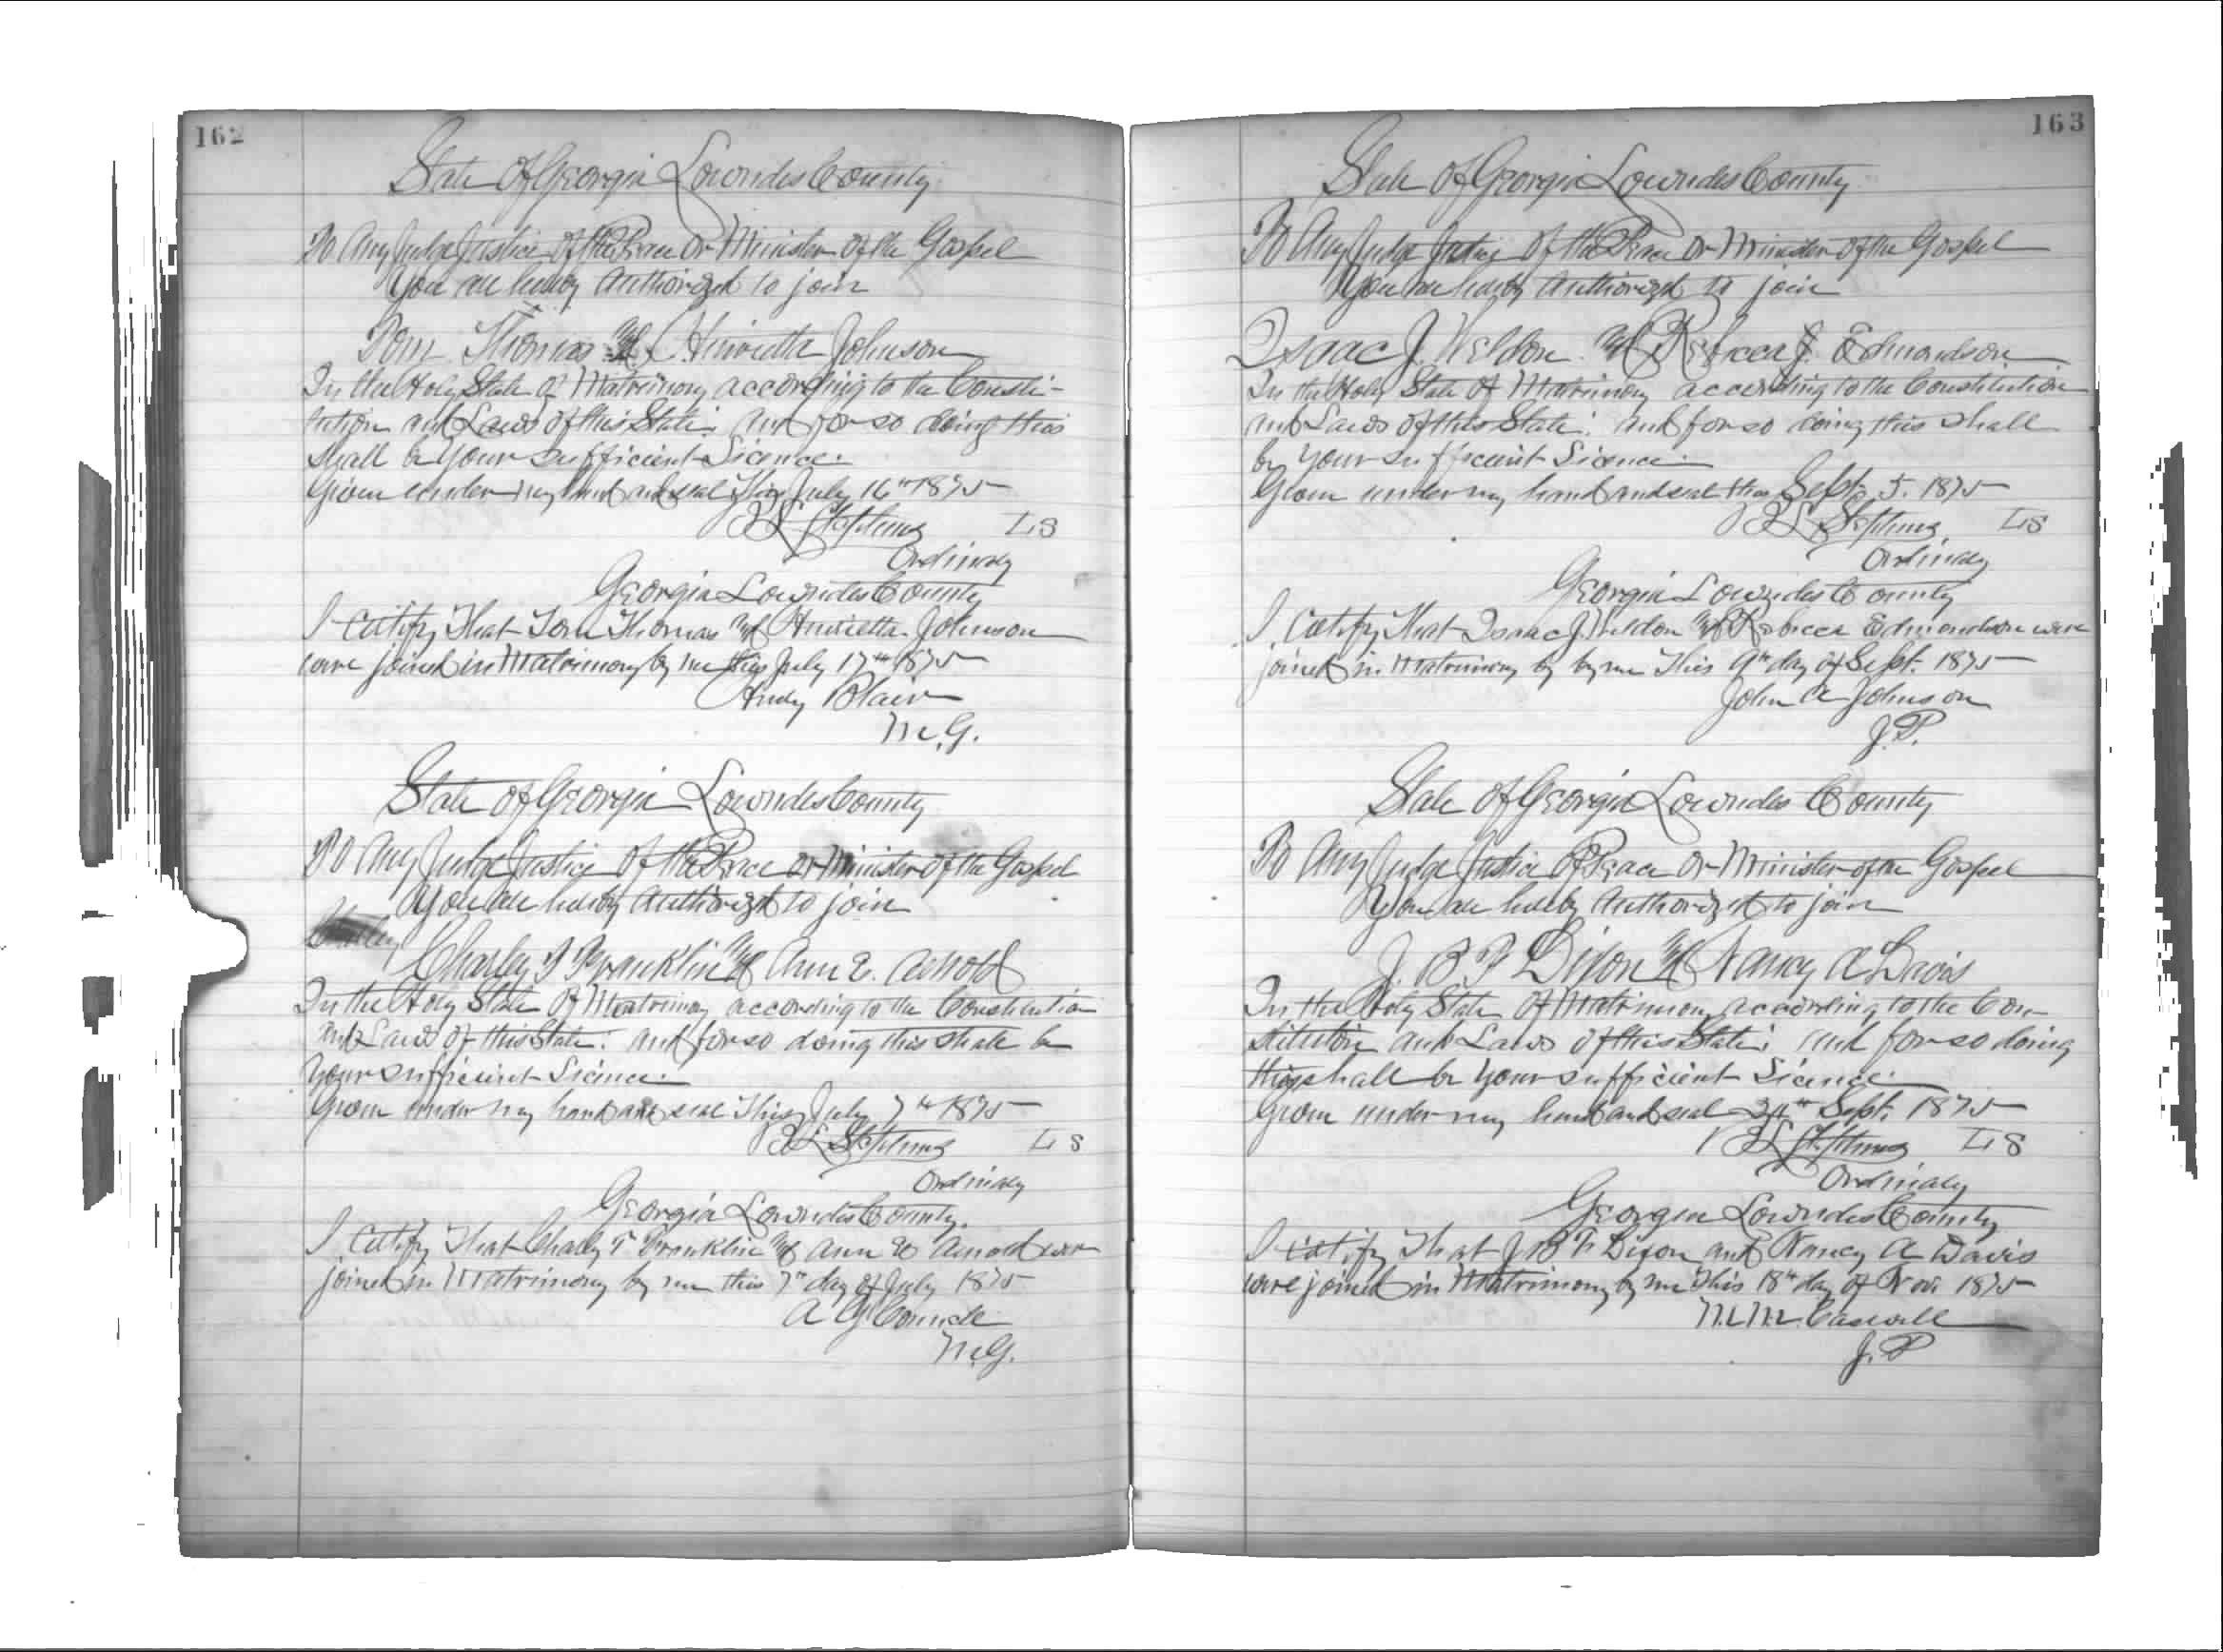 162
State of Georgia Lowndes County
To Any Judge Justice of the Peace or Minister of the Gospel
You are hereby Authorized to join
Tom Thomas & Henrietta Johnson
In the Holy State of Matrimony according to the Consti-
tution and Laws of this State: and for so doing this
shall be your sufficient License.
Given under my hand and seal This July 16th 1875
Stephens LS
Ordinary
Georgia Lowndes County
I Certify That Tom Thomas & Henrietta Johnson
were joined in Matrimony by me this July 17th 1875
Andy Blair
M.G.
State of Georgia Lowndes County
To Any Judge Justice of the Peace or Minister of the Gospel
You are hereby Authorized to join
Charley T Franklin & Ann E. Arnold
In the Holy State of Matrimony according to the Constitution
and Laws of this State: and for so doing this shall be
your sufficient License.
Given under my hand and seal This July 7th 1875
Stephens LS
Ordinary
Georgia Lowndes County.
I Certify That Charly T Franklin & Ann E Arnold were
joined in Matrimony by me this 7th day of July 1875
A G
M.G.
163
State of Georgia Lowndes County
To Any Judge Justice of the Peace or Minister of the Gospel
You are hereby Authorized to join
Isaac J. Weldon & Rebecca J. Edmondson
In the Holy State of Matrimony according to the Constitution
and Laws of this State: and for so doing this shall
be your sufficient License.
Given under my hand and seal this Sept. 5. 1875
Stephens LS
Ordinary
Georgia Lowndes County
I Certify That Isaac J Weldon & Rebecca Edmondson were
joined in Matrimony by by me This 9th day of Sept. 1875
John A Johnson
J.P.
State of Georgia Lowndes County
To Any Judge Justice of Peace or Minister of the Gospel
You are hereby Authorized to join
J. B. F Dixon & Nancy A Davis
In the Holy State of Matrimony according to the Con-
stitution and Laws of this State: and for so doing
this shall be your sufficient License.
Given under my hand and seal 24th Sept. 1875
Stephens LS
Ordinary
Georgia Lowndes County
I Certify That J B F Dixon and Nancy A Davis
were joined in Matrimony by me This 18th day of Nov 1875
M. M. Caswell
J.P